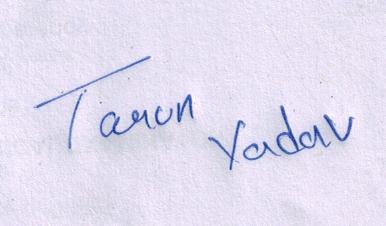 Tarun
Yadav